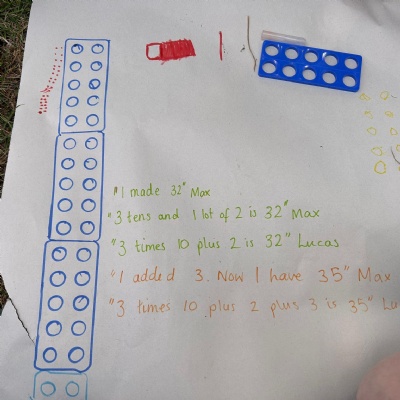 "I made 32" Max
"3 tens and 1 lot of 2 is 32" Max
"3 times 10 plus 2 is 32" Lucas
"I added 3. Now I have 35" Max
"3 times 10 plus 2 plus 3 is 35" Lu